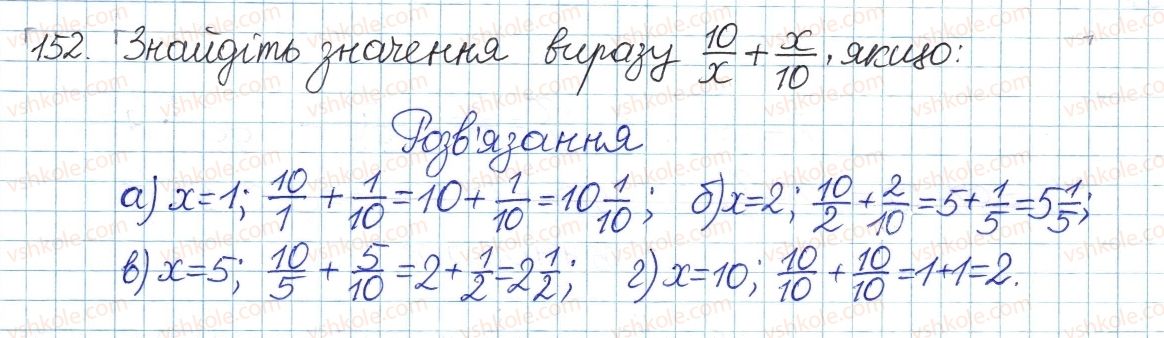 152. Знайдіть значення виразу 10/x + x/10, якщо:
Розв'язання
а) x=1; 10/1 + 1/10 = 10 + 1/10 = 10 1/10; б) x=2; 10/2 + 2/10 = 5 + 1/5 = 5 1/5;
в) x=5; 10/5 + 5/10 = 2 + 1/2 = 2 1/2; г) x=10; 10/10 + 10/10 = 1+1=2.